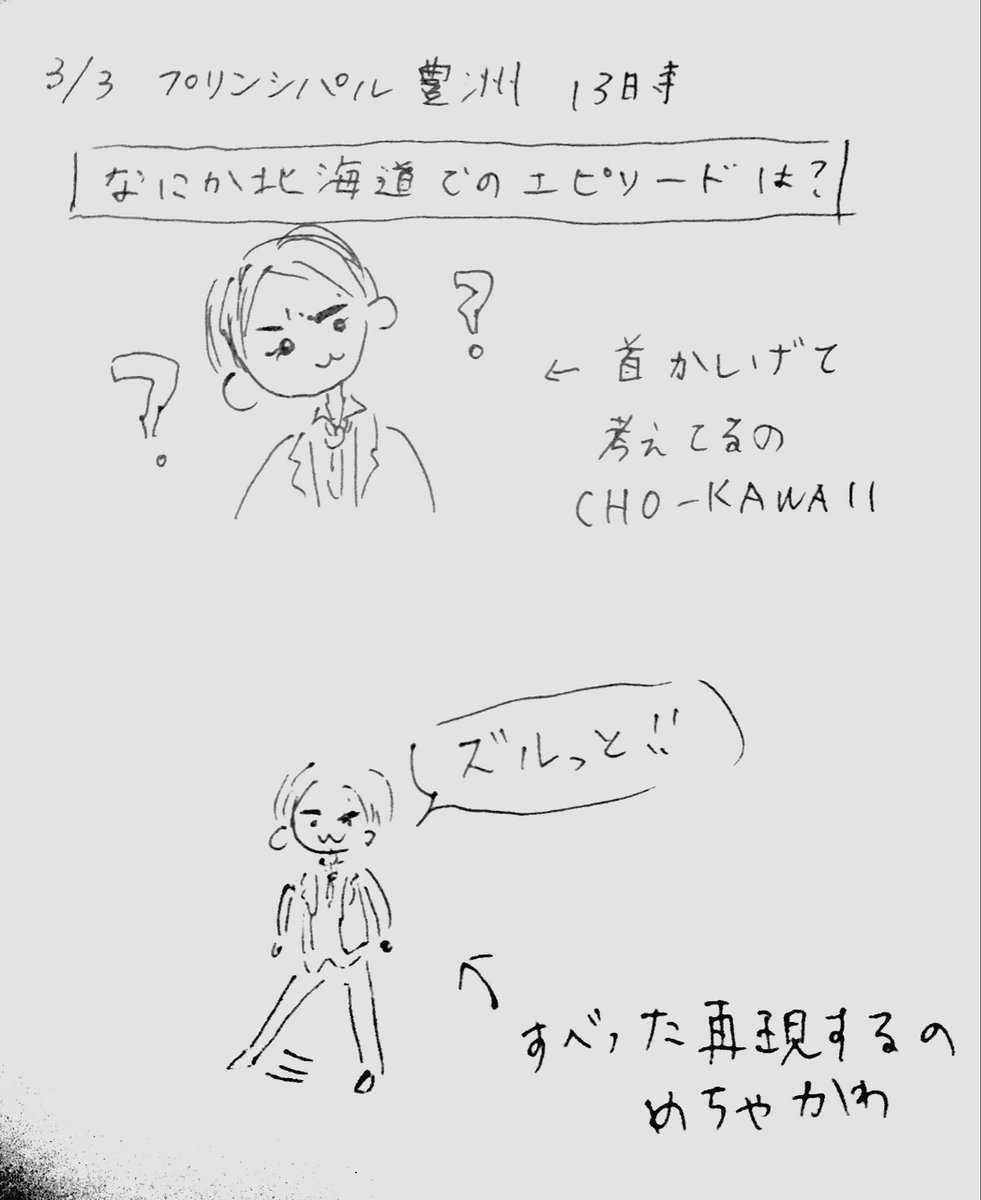 3/3 プリンシパル 豊洲 13日寺
なにか北海道でのエピソードは?
?
?
← 首かしげて
考えてるの
CHO-KAWAII
ズルっと!!
すべった再現するの
めちゃかわ